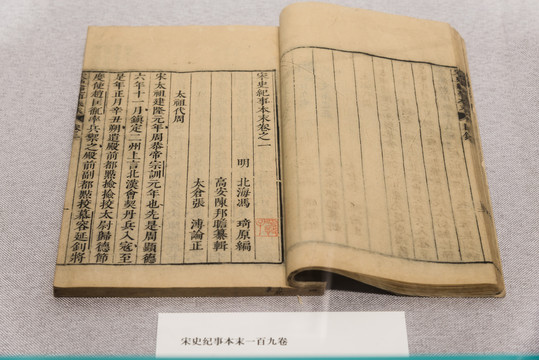 宋史紀事本末卷之一
明 北海馮 琦原編
高安陳邦瞻纂輯
太倉張 溥論正
太祖代周
宋太祖建隆元年周恭帝宗訓元年也先是周顯德
六年十一月鎮定二州上言北漢會契丹兵入寇至
是年正月辛丑朔遣殿前都點撿撿校太尉歸德節
度使趙匡胤率兵禦之殿前副都點撿慕容延釗將
宋史紀事本末一百九卷